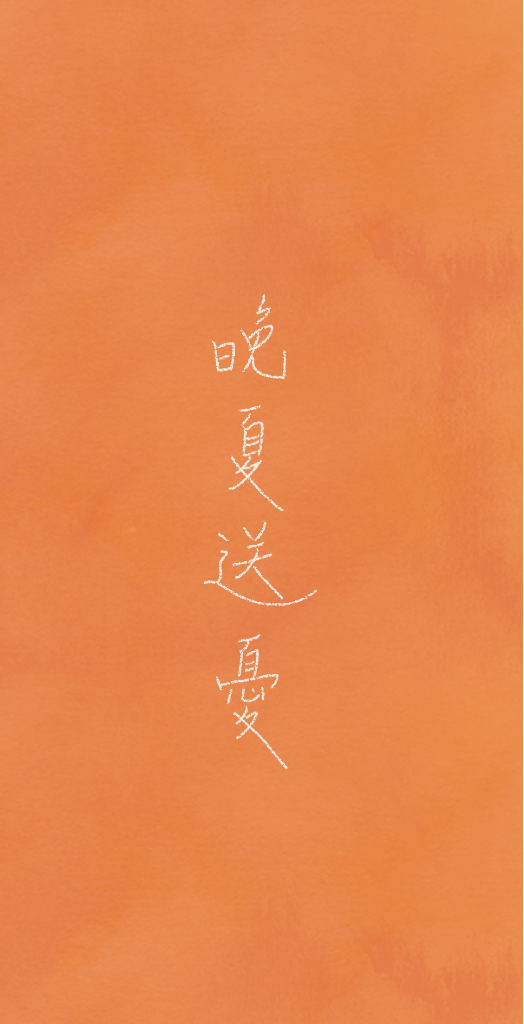 晚夏送憂